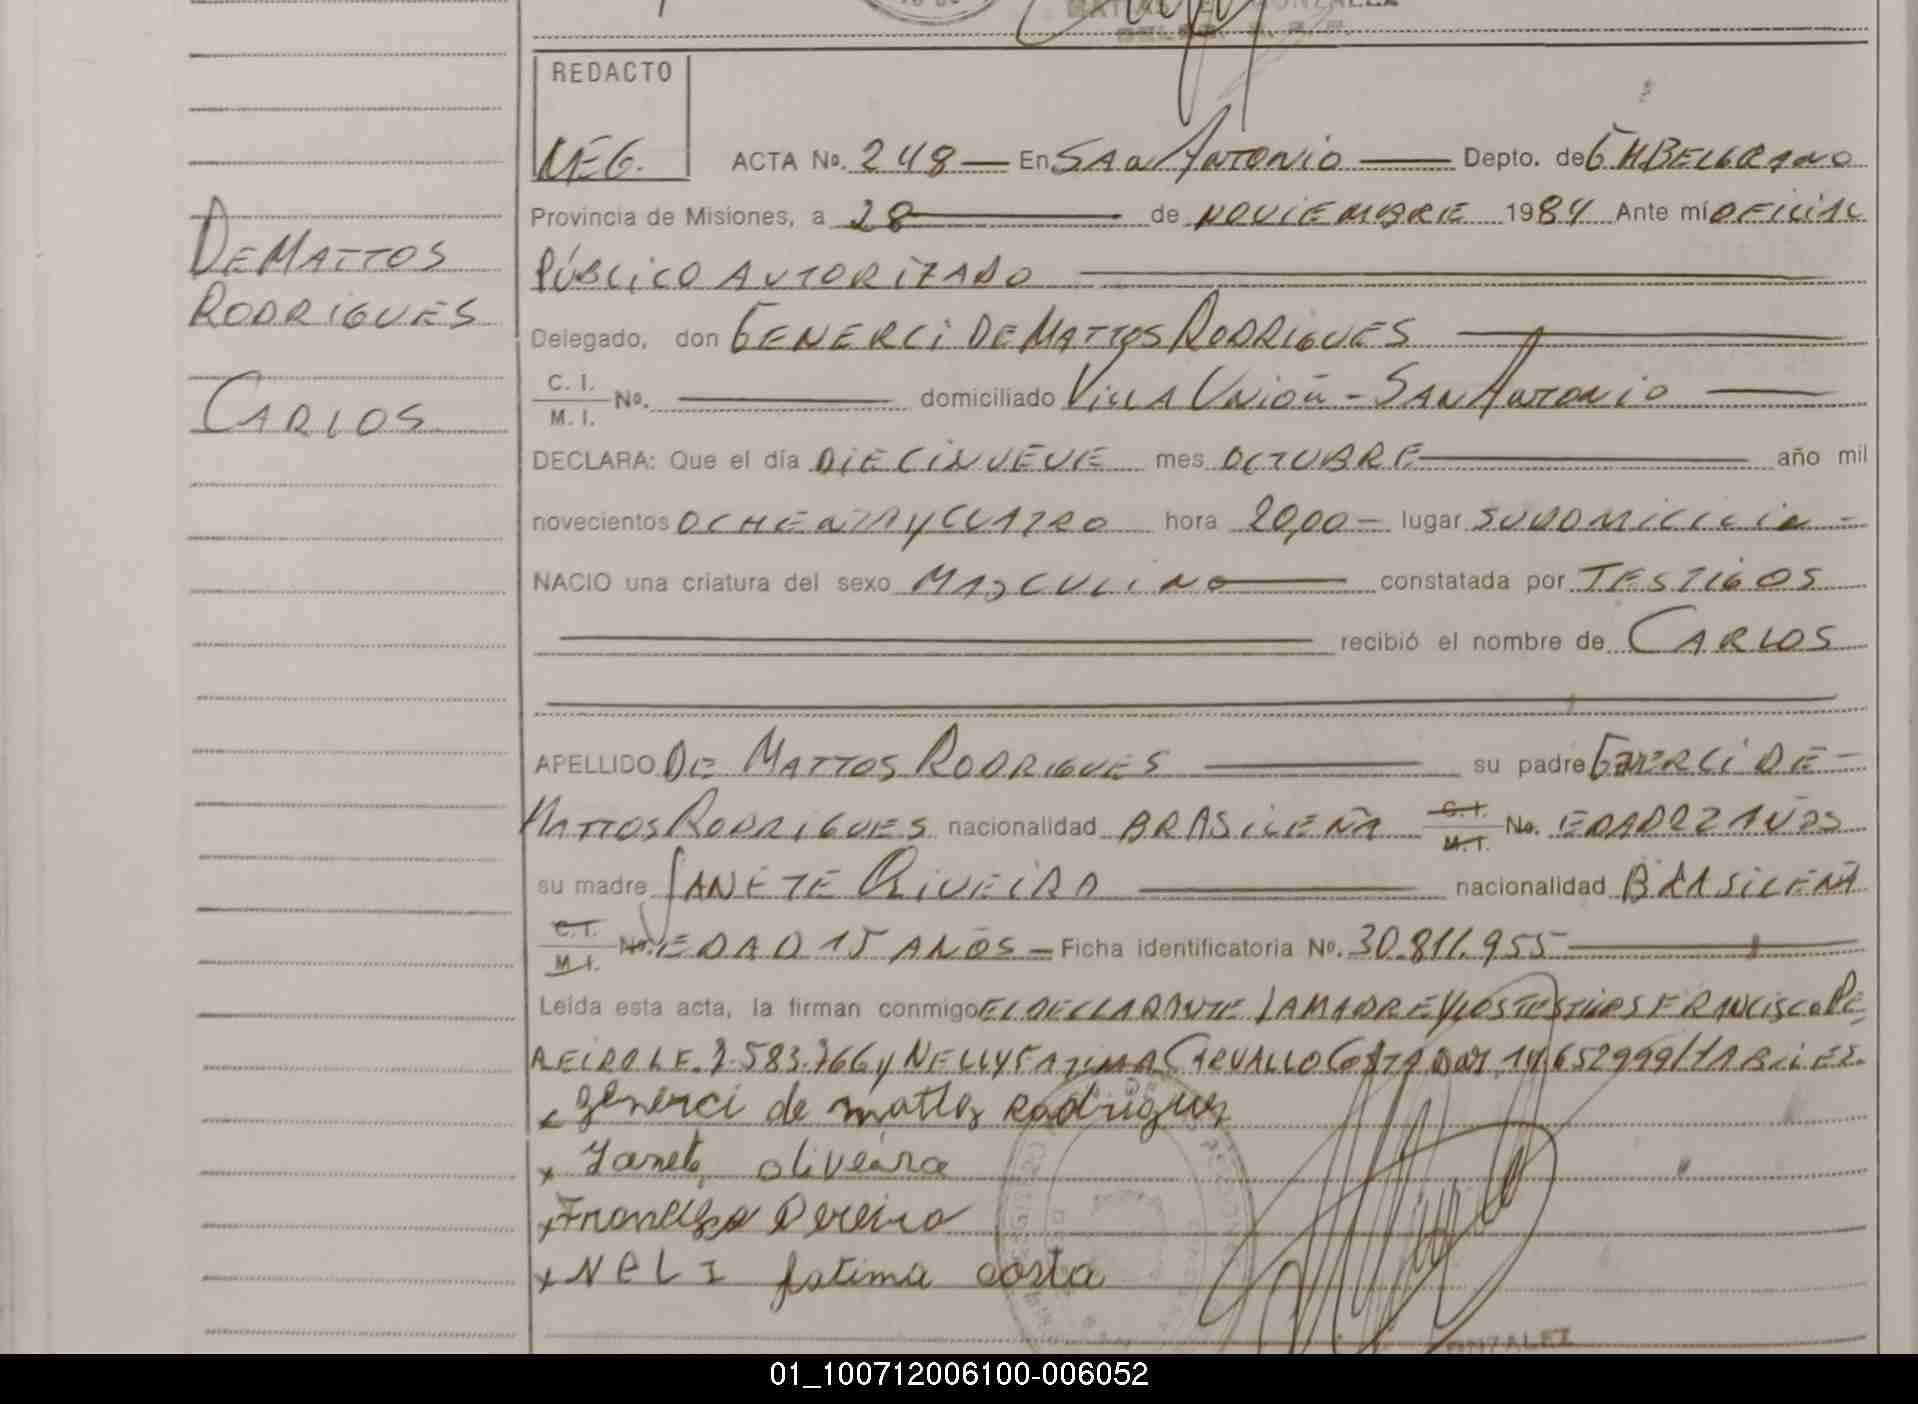 REDACTO
NEG.
ACTA No. 248 En San Antonio Depto. de G M BELGRANO
Provincia de Misiones, a 28 de NOVIEMBRE 1984 Ante mí OFICIAL
PÚBLICO AUTORIZADO
DE MATTOS
RODRIGUES
CARLOS
Delegado, don GENERCI DE MATTOS RODRIGUES
C. I.
M. I. No. domiciliado VILLA UNIÓN - SAN ANTONIO
DECLARA: Que el día DIECINUEVE mes OCTUBRE año mil
novecientos OCHENTA Y CUATRO hora 20,00 - lugar SU DOMICILIO -
NACIO una criatura del sexo MASCULINO constatada por TESTIGOS
recibió el nombre de CARLOS
APELLIDO DE MATTOS RODRIGUES su padre GENERCI DE
MATTOS RODRIGUES nacionalidad BRASILEÑA C.I. M.I. No. EDAD 22 AÑOS
su madre JANETE OLIVEIRA nacionalidad BRASILEÑA
C.I. M.I. No. EDAD 15 AÑOS - Ficha identificatoria No. 30.811.955
Leída esta acta, la firman conmigo EL DECLARANTE LA MADRE Y LOS TESTIGOS FRANCISCO PE
REIRA L.E. 7.583.766 y NELLY FATIMA CARVALLO COSTA DNI 14.652999 HABILES.
x generci de mattos Rodrigues
x Janete oliveira
x Francisco Pereira
x NeLI fatima costa
GONZALEZ
01_100712006100-006052